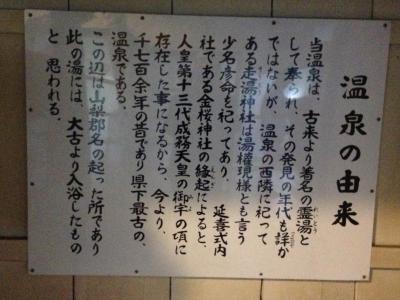 温泉の由来
当温泉は、古来より著名の霊湯と
して奉られ、その発見の年代も詳か
ではないが、温泉の西隣に祀って
ある走湯神社は湯権現様とも言う
少名彦命を祀ってあり、延喜式内
社である金桜神社の縁起によると、
人皇第十三代成務天皇の御宇の項に
存在した事になるから、今より、
千七百余年の昔であり県下最古の、
温泉である。
この辺は山梨郡名の起った所であり
此の湯には、大古より入浴したもの
と思われる。